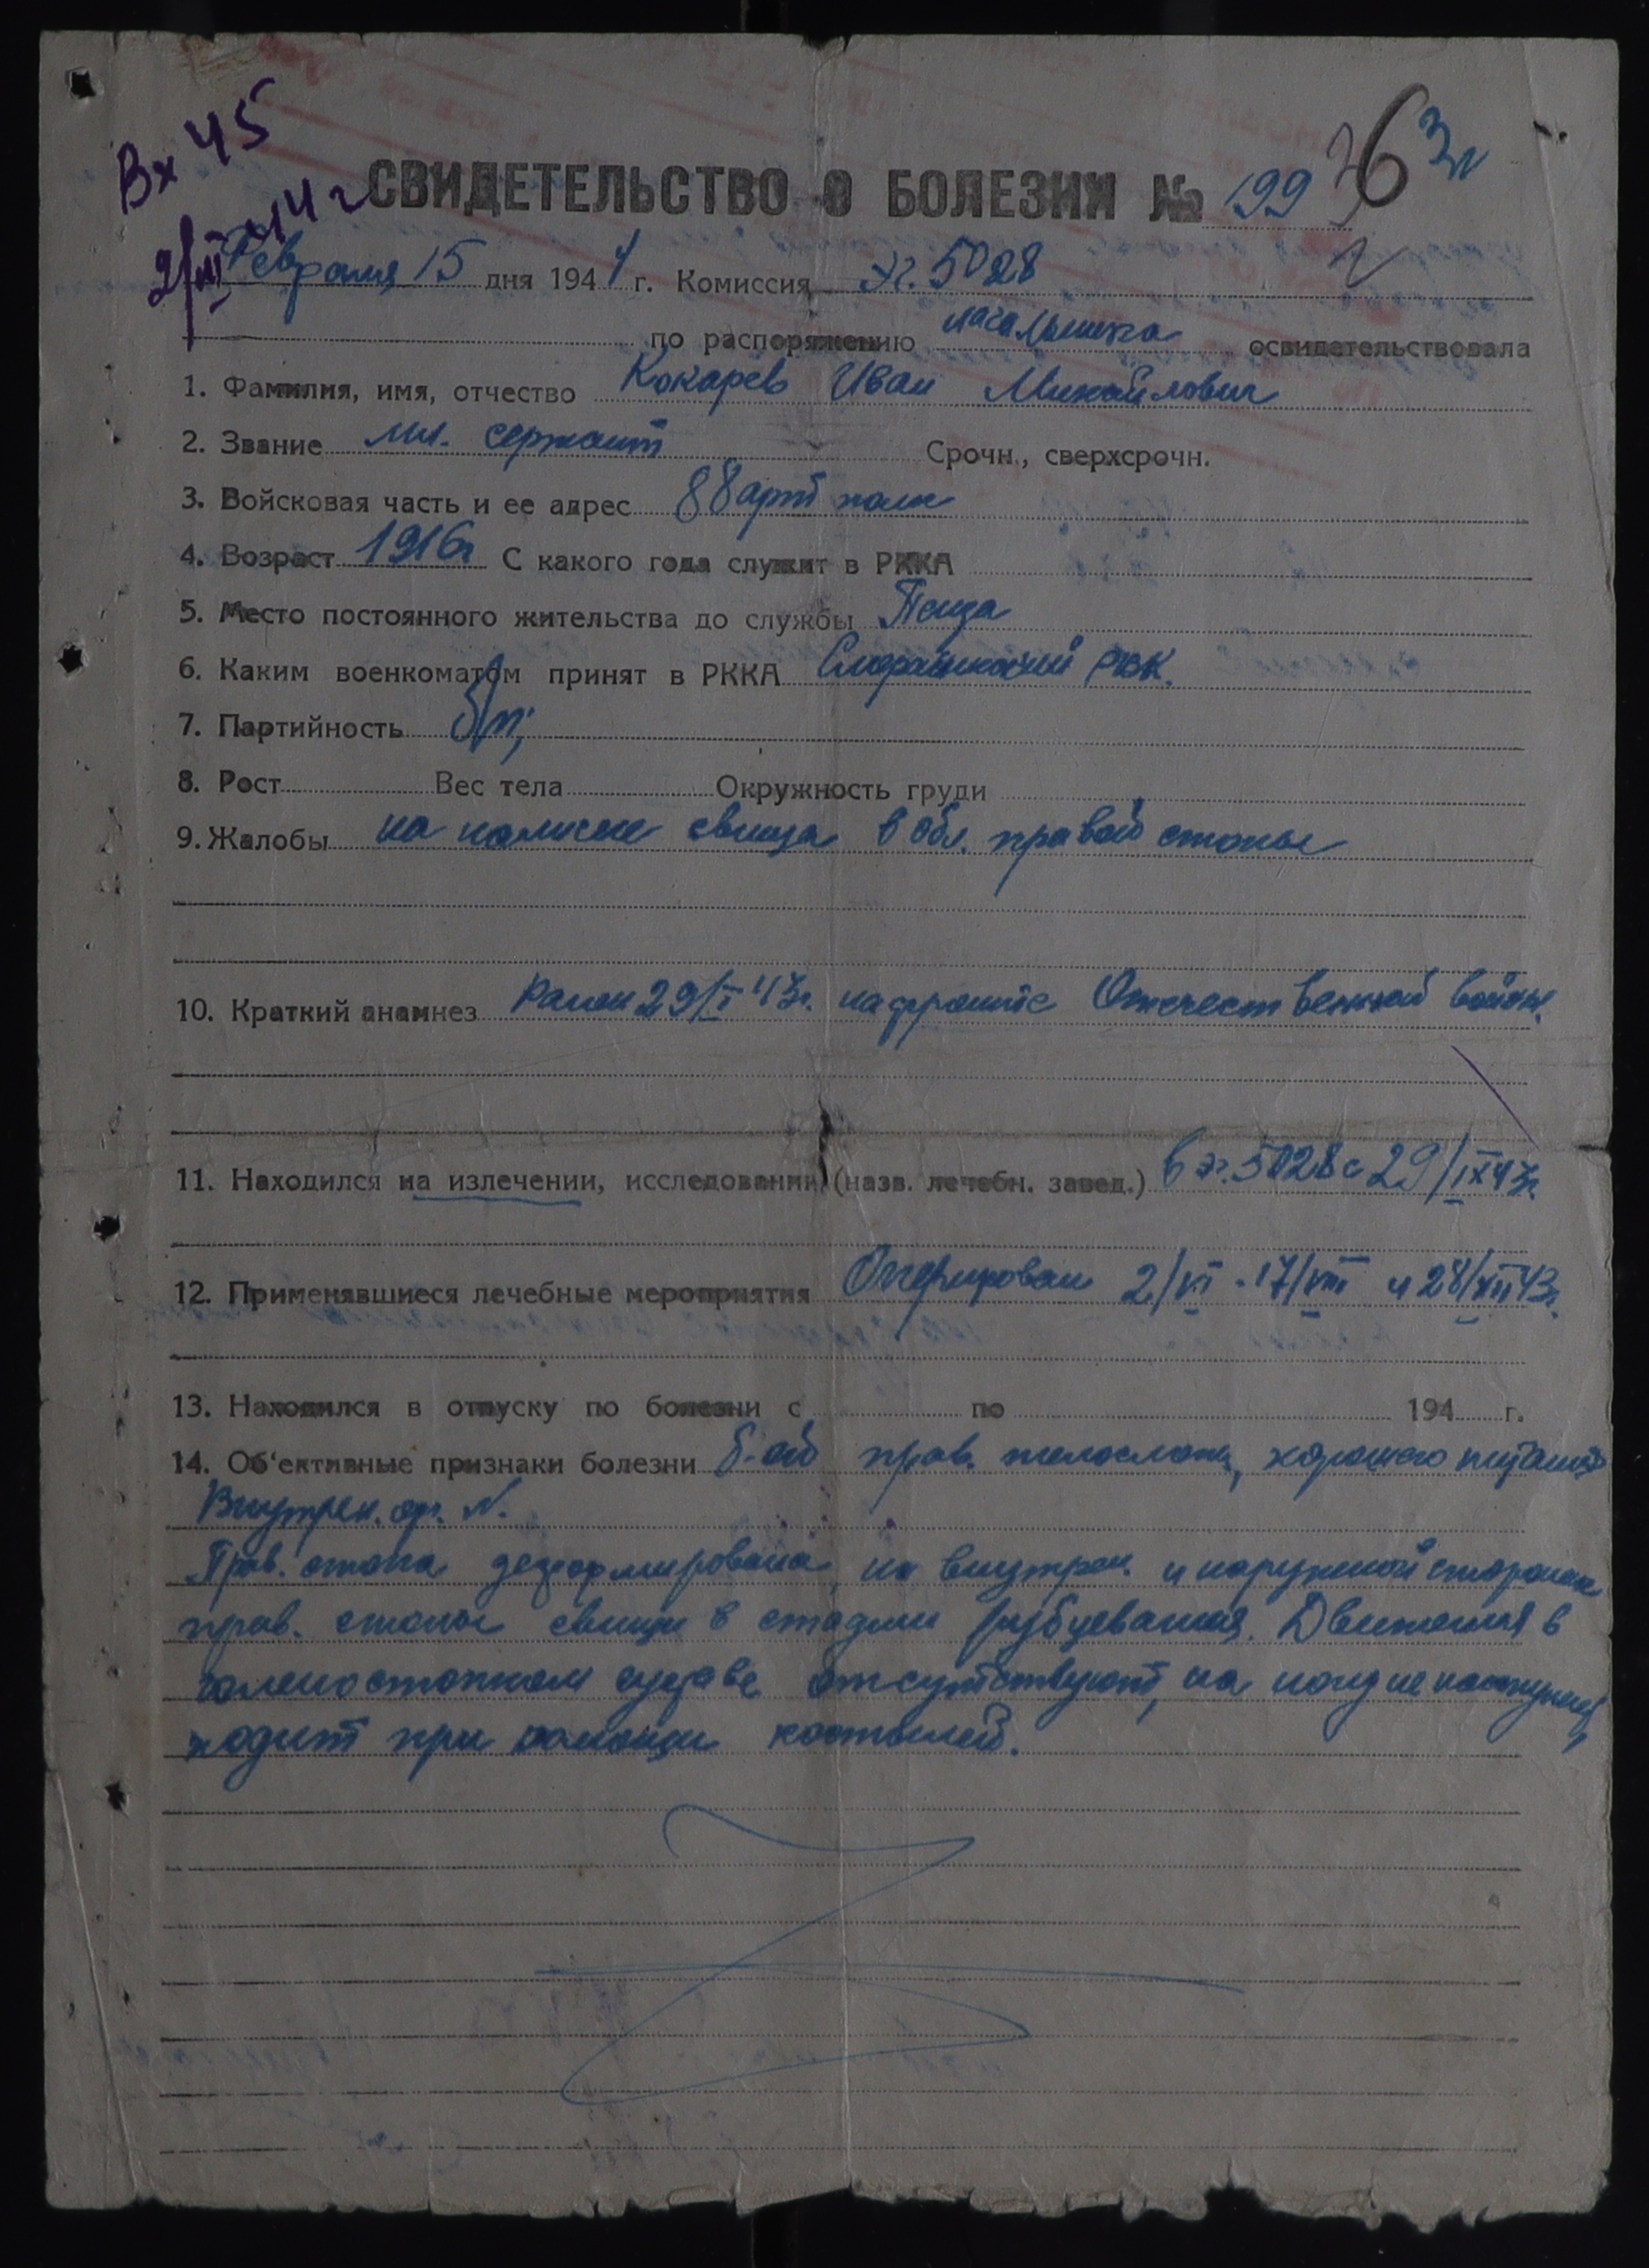 Вх 45
2/III 44 г
36 3л
СВИДЕТЕЛЬСТВО О БОЛЕЗНИ № 199
Февраля 15 дня 1944 г. Комиссия эг. 5028
по распоряжению начальника освидетельствовала
1. Фамилия, имя, отчество Кокарев Иван Михайлович
2. Звание мл. сержант Срочн., сверхсрочн.
3. Войсковая часть и ее адрес 88 арт полк
4. Возраст 1916г С какого года служит в РККА
5. Место постоянного жительства до службы Пенза
6. Каким военкоматом принят в РККА РВК.
7. Партийность б/п;
8. Рост Вес тела Окружность груди
9. Жалобы на наличие свища в обл. правой стопы
10. Краткий анамнез Ранен 29/I 43г. на фронте Отечественной войны.
11. Находился на излечении, исследовании (назв. лечебн. завед.) в эг. 5028 с 29/IX 43г.
12. Применявшиеся лечебные мероприятия Оперирован 2/VI - 17/VIII и 28/XII 43г.
13. Находился в отпуску по болезни с по 194 г.
14. Об'ективные признаки болезни б-ой прав. телослож, хорошего питания
Внутрен. ор. N.
Прав. стопа деформирована, на внутрен. и наружной сторонах
прав. стопы свищи в стадии рубцевания. Движения в
голеностопном суставе отсутствуют, на ногу не наступает,
ходит при помощи костылей.